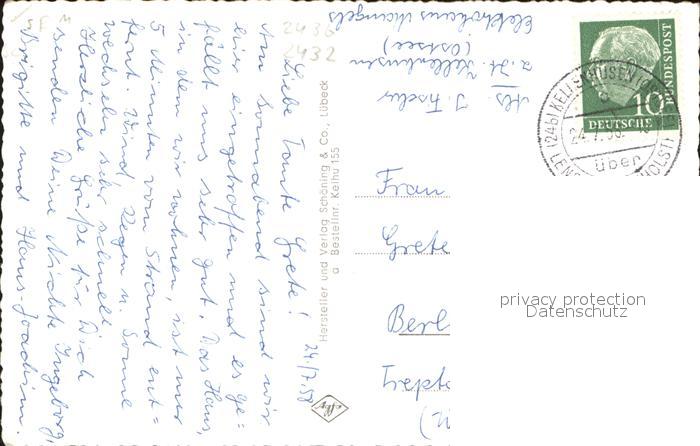 2436
2432
24./7.58
Liebe Tante Grete!
Am Sonnabend sind wir
hier eingetroffen und es ge=
fällt uns sehr gut. Das Haus,
in dem wir wohnen, ist nur
5 Minuten vom Strand ent=
fernt. Wind Regen u. Sonne
wechseln sehr schnell.
Herzliche Grüße für Dich
senden Deine Nichte Ingeborg,
Brigitte und Hans-Joachim.
Hersteller und Verlag Schöning & Co., Lübeck
a Bestellnr. Kelhu 155
Abs J. Fischer
z. Zt. Kellenhusen
(Ostsee)
Elektrohaus Mangels
DEUTSCHE BUNDESPOST
10
(24b) KELLENHUSEN
24.7.58
über
Frau
Grete
Berl
privacy protection
Datenschutz